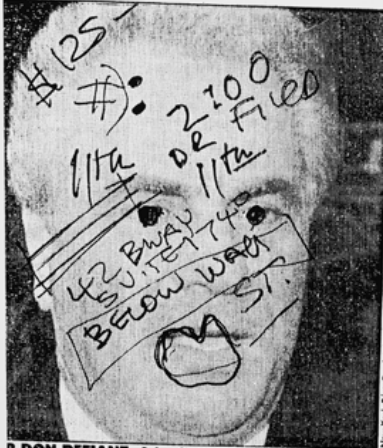 $125-
#):
2:00
OR FILED
11th
11th
42 BWAY
SUITE 1740
BELOW WALL
ST.